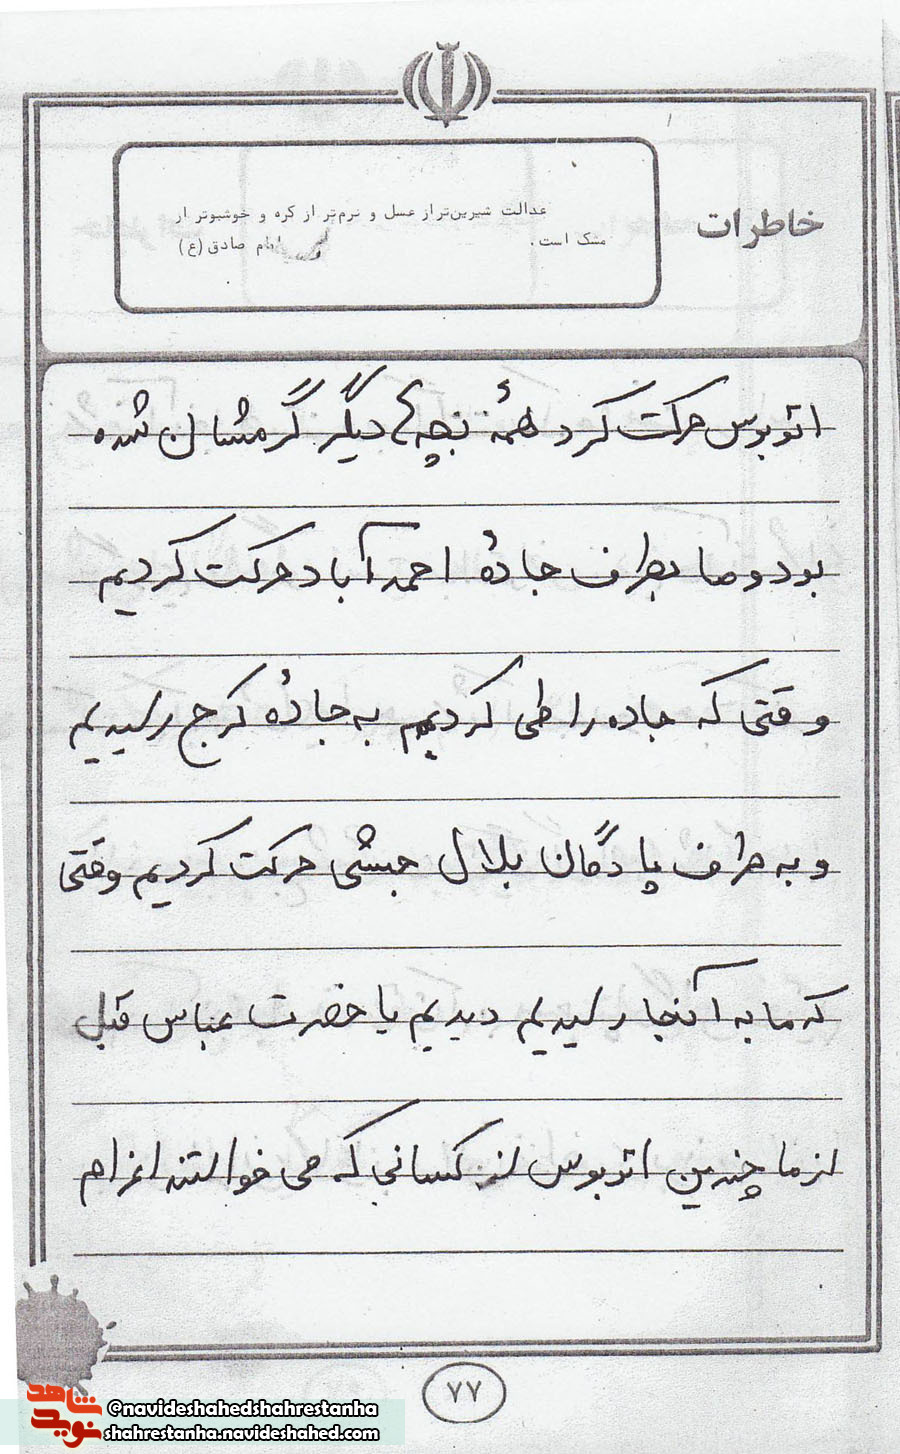 خاطرات
عدالت شیرین‌تر از عسل و نرم‌تر از کره و خوشبوتر از
مشک است. امام صادق (ع)
اتوبوس حرکت کرد همهٔ بچه‌ها دیگر گرمشان شده
بود و ما بطرف جادهٔ احمد آباد حرکت کردیم
وقتی که جاده را طی کردیم به جادهٔ کرج رسیدیم
و به طرف پادگان بلال حبشی حرکت کردیم وقتی
که ما به آنجا رسیدیم دیدیم یا حضرت عباس قبل
از ما چندین اتوبوس از کسانی که می خواستند اعزام
۷۷
شاهد
نوید
@navideshahedshahrestanha
shahrestanha.navideshahed.com